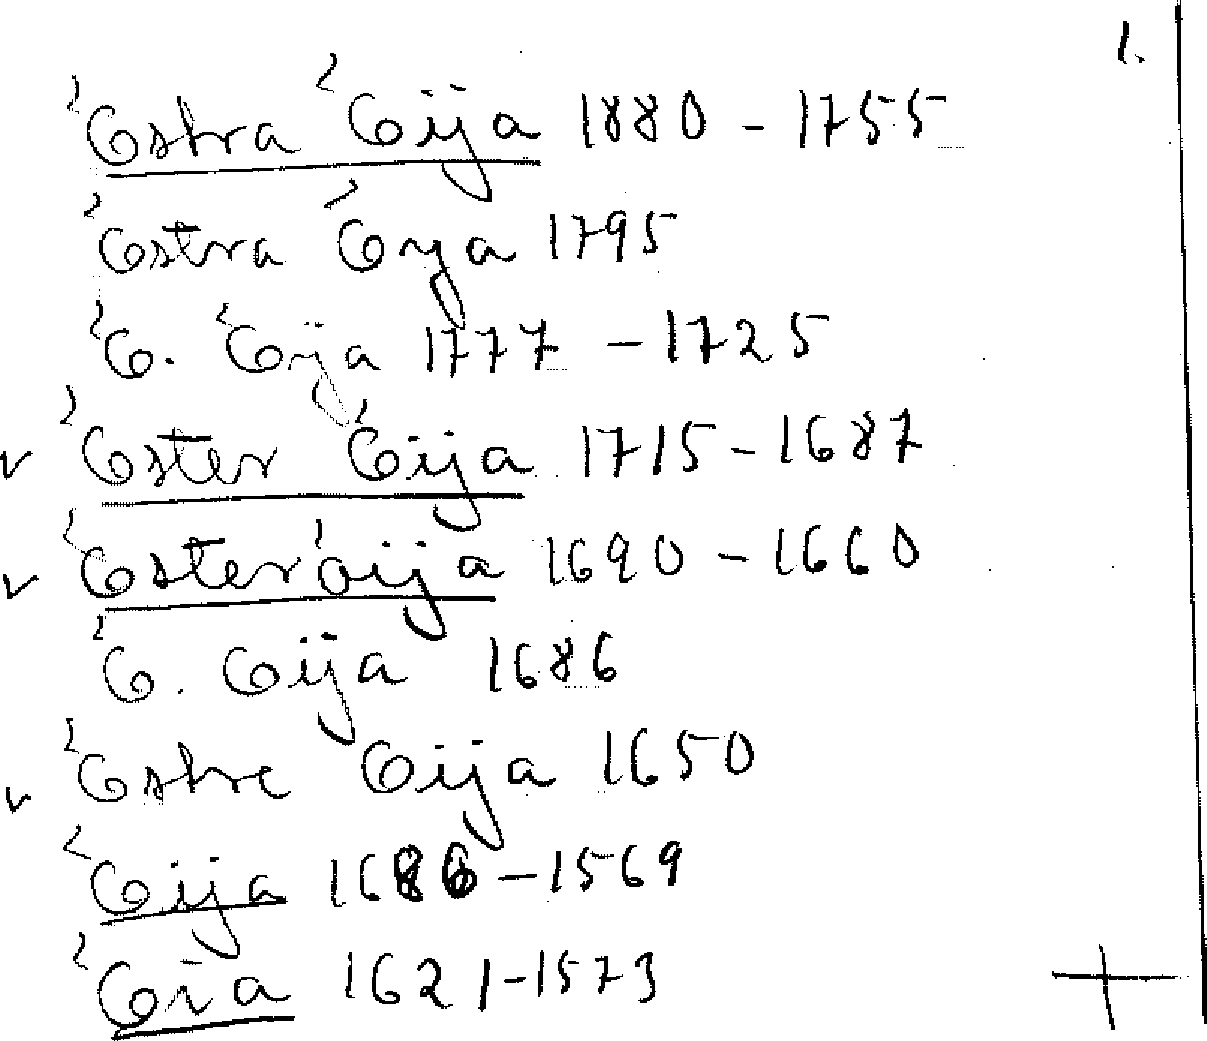 1.
Östra Öija 1880 - 1755
Östra Öya 1795
Ö. Öÿa 1777 - 1725
Öster Öija 1715 - 1687
Österöija 1690 - 1660
Ö. Öija 1686
Östre Öija 1650
Öija 1686 - 1569
Öia 1621 - 1573